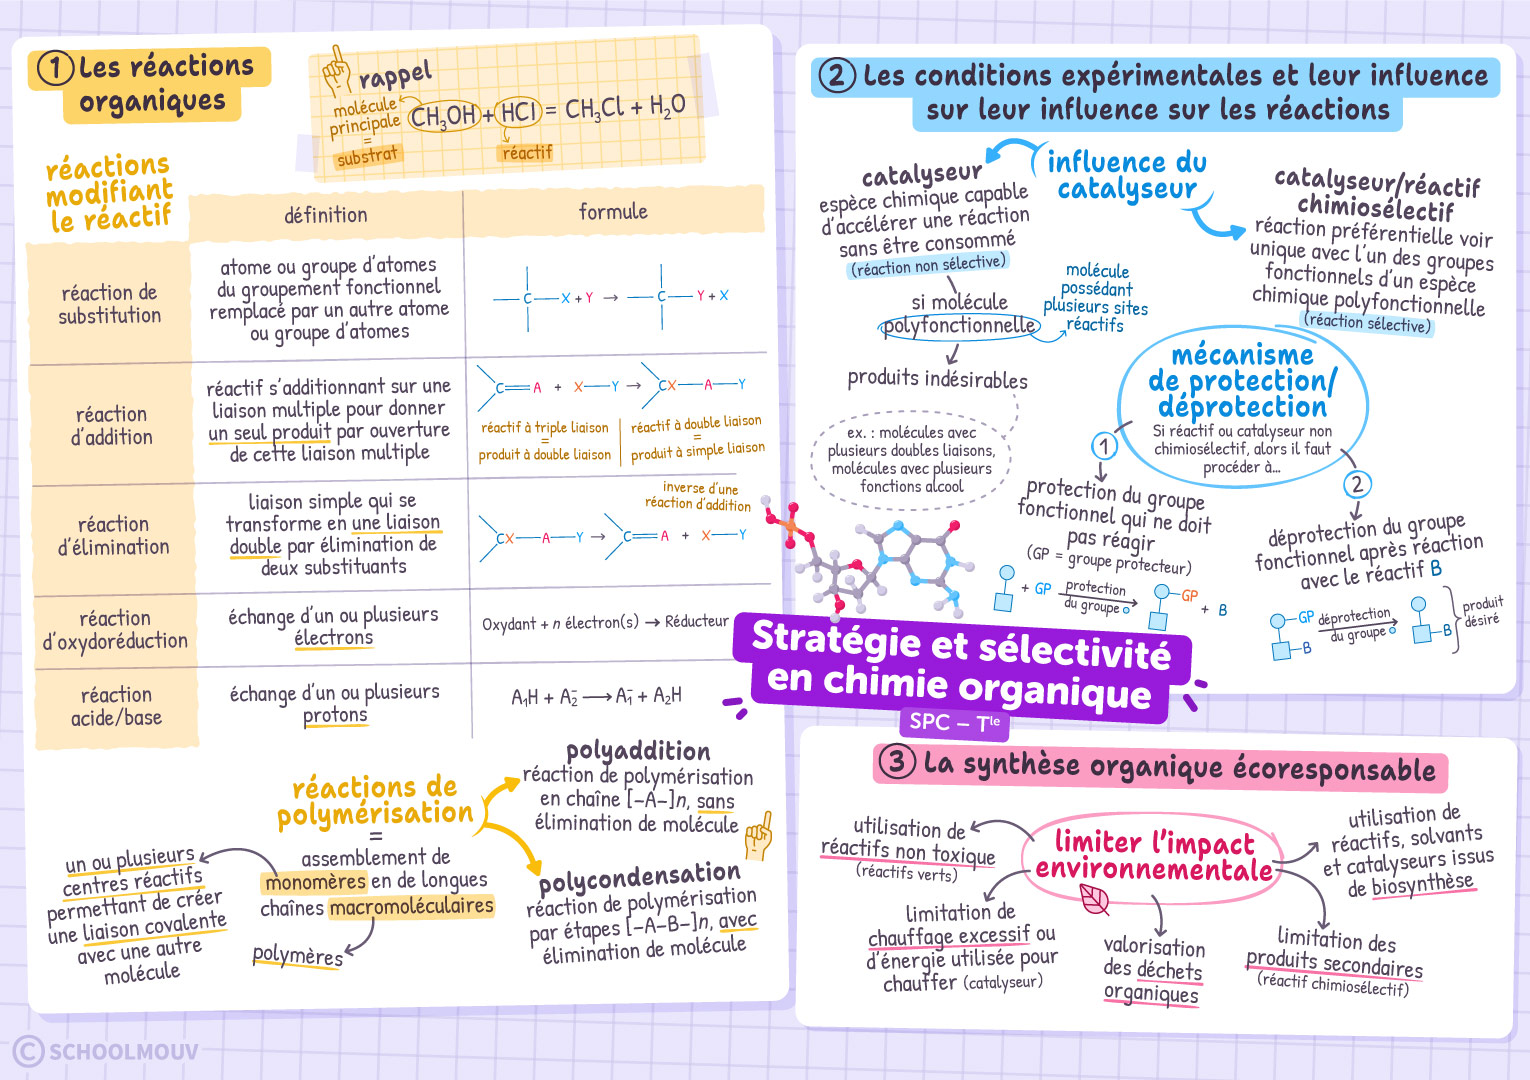 1 Les réactions
organiques
rappel
molécule
principale
=
substrat
CH₃OH + HCl = CH₃Cl + H₂O
réactif
réactions
modifiant
le réactif
définition
formule
réaction de
substitution
atome ou groupe d'atomes
du groupement fonctionnel
remplacé par un autre atome
ou groupe d'atomes
C—X + Y → C—Y + X
réaction
d'addition
réactif s'additionnant sur une
liaison multiple pour donner
un seul produit par ouverture
de cette liaison multiple
C=A + X—Y → CX—A—Y
réactif à triple liaison
=
produit à double liaison
réactif à double liaison
=
produit à simple liaison
réaction
d'élimination
liaison simple qui se
transforme en une liaison
double par élimination de
deux substituants
inverse d'une
réaction d'addition
CX—A—Y → C=A + X—Y
réaction
d'oxydoréduction
échange d'un ou plusieurs
électrons
Oxydant + n électron(s) → Réducteur
réaction
acide/base
échange d'un ou plusieurs
protons
A₁H + A₂⁻ → A₁⁻ + A₂H
réactions de
polymérisation
=
assemblement de
monomères en de longues
chaînes macromoléculaires
un ou plusieurs
centres réactifs
permettant de créer
une liaison covalente
avec une autre
molécule
polymères
polyaddition
réaction de polymérisation
en chaîne [–A–]n, sans
élimination de molécule
polycondensation
réaction de polymérisation
par étapes [–A–B–]n, avec
élimination de molécule
2 Les conditions expérimentales et leur influence
sur leur influence sur les réactions
influence du
catalyseur
catalyseur
espèce chimique capable
d'accélérer une réaction
sans être consommé
(réaction non sélective)
si molécule
polyfonctionnelle
molécule
possédant
plusieurs sites
réactifs
produits indésirables
ex. : molécules avec
plusieurs doubles liaisons,
molécules avec plusieurs
fonctions alcool
catalyseur/réactif
chimiosélectif
réaction préférentielle voir
unique avec l'un des groupes
fonctionnels d'un espèce
chimique polyfonctionnelle
(réaction sélective)
mécanisme
de protection/
déprotection
Si réactif ou catalyseur non
chimiosélectif, alors il faut
procéder à...
1
protection du groupe
fonctionnel qui ne doit
pas réagir
(GP = groupe protecteur)
+ GP
protection
du groupe
GP
+ B
2
déprotection du groupe
fonctionnel après réaction
avec le réactif B
GP
B
déprotection
du groupe
B
produit
désiré
Stratégie et sélectivité
en chimie organique
SPC – Tle
3 La synthèse organique écoresponsable
limiter l'impact
environnementale
utilisation de
réactifs non toxique
(réactifs verts)
limitation de
chauffage excessif ou
d'énergie utilisée pour
chauffer (catalyseur)
valorisation
des déchets
organiques
limitation des
produits secondaires
(réactif chimiosélectif)
utilisation de
réactifs, solvants
et catalyseurs issus
de biosynthèse
© SCHOOLMOUV